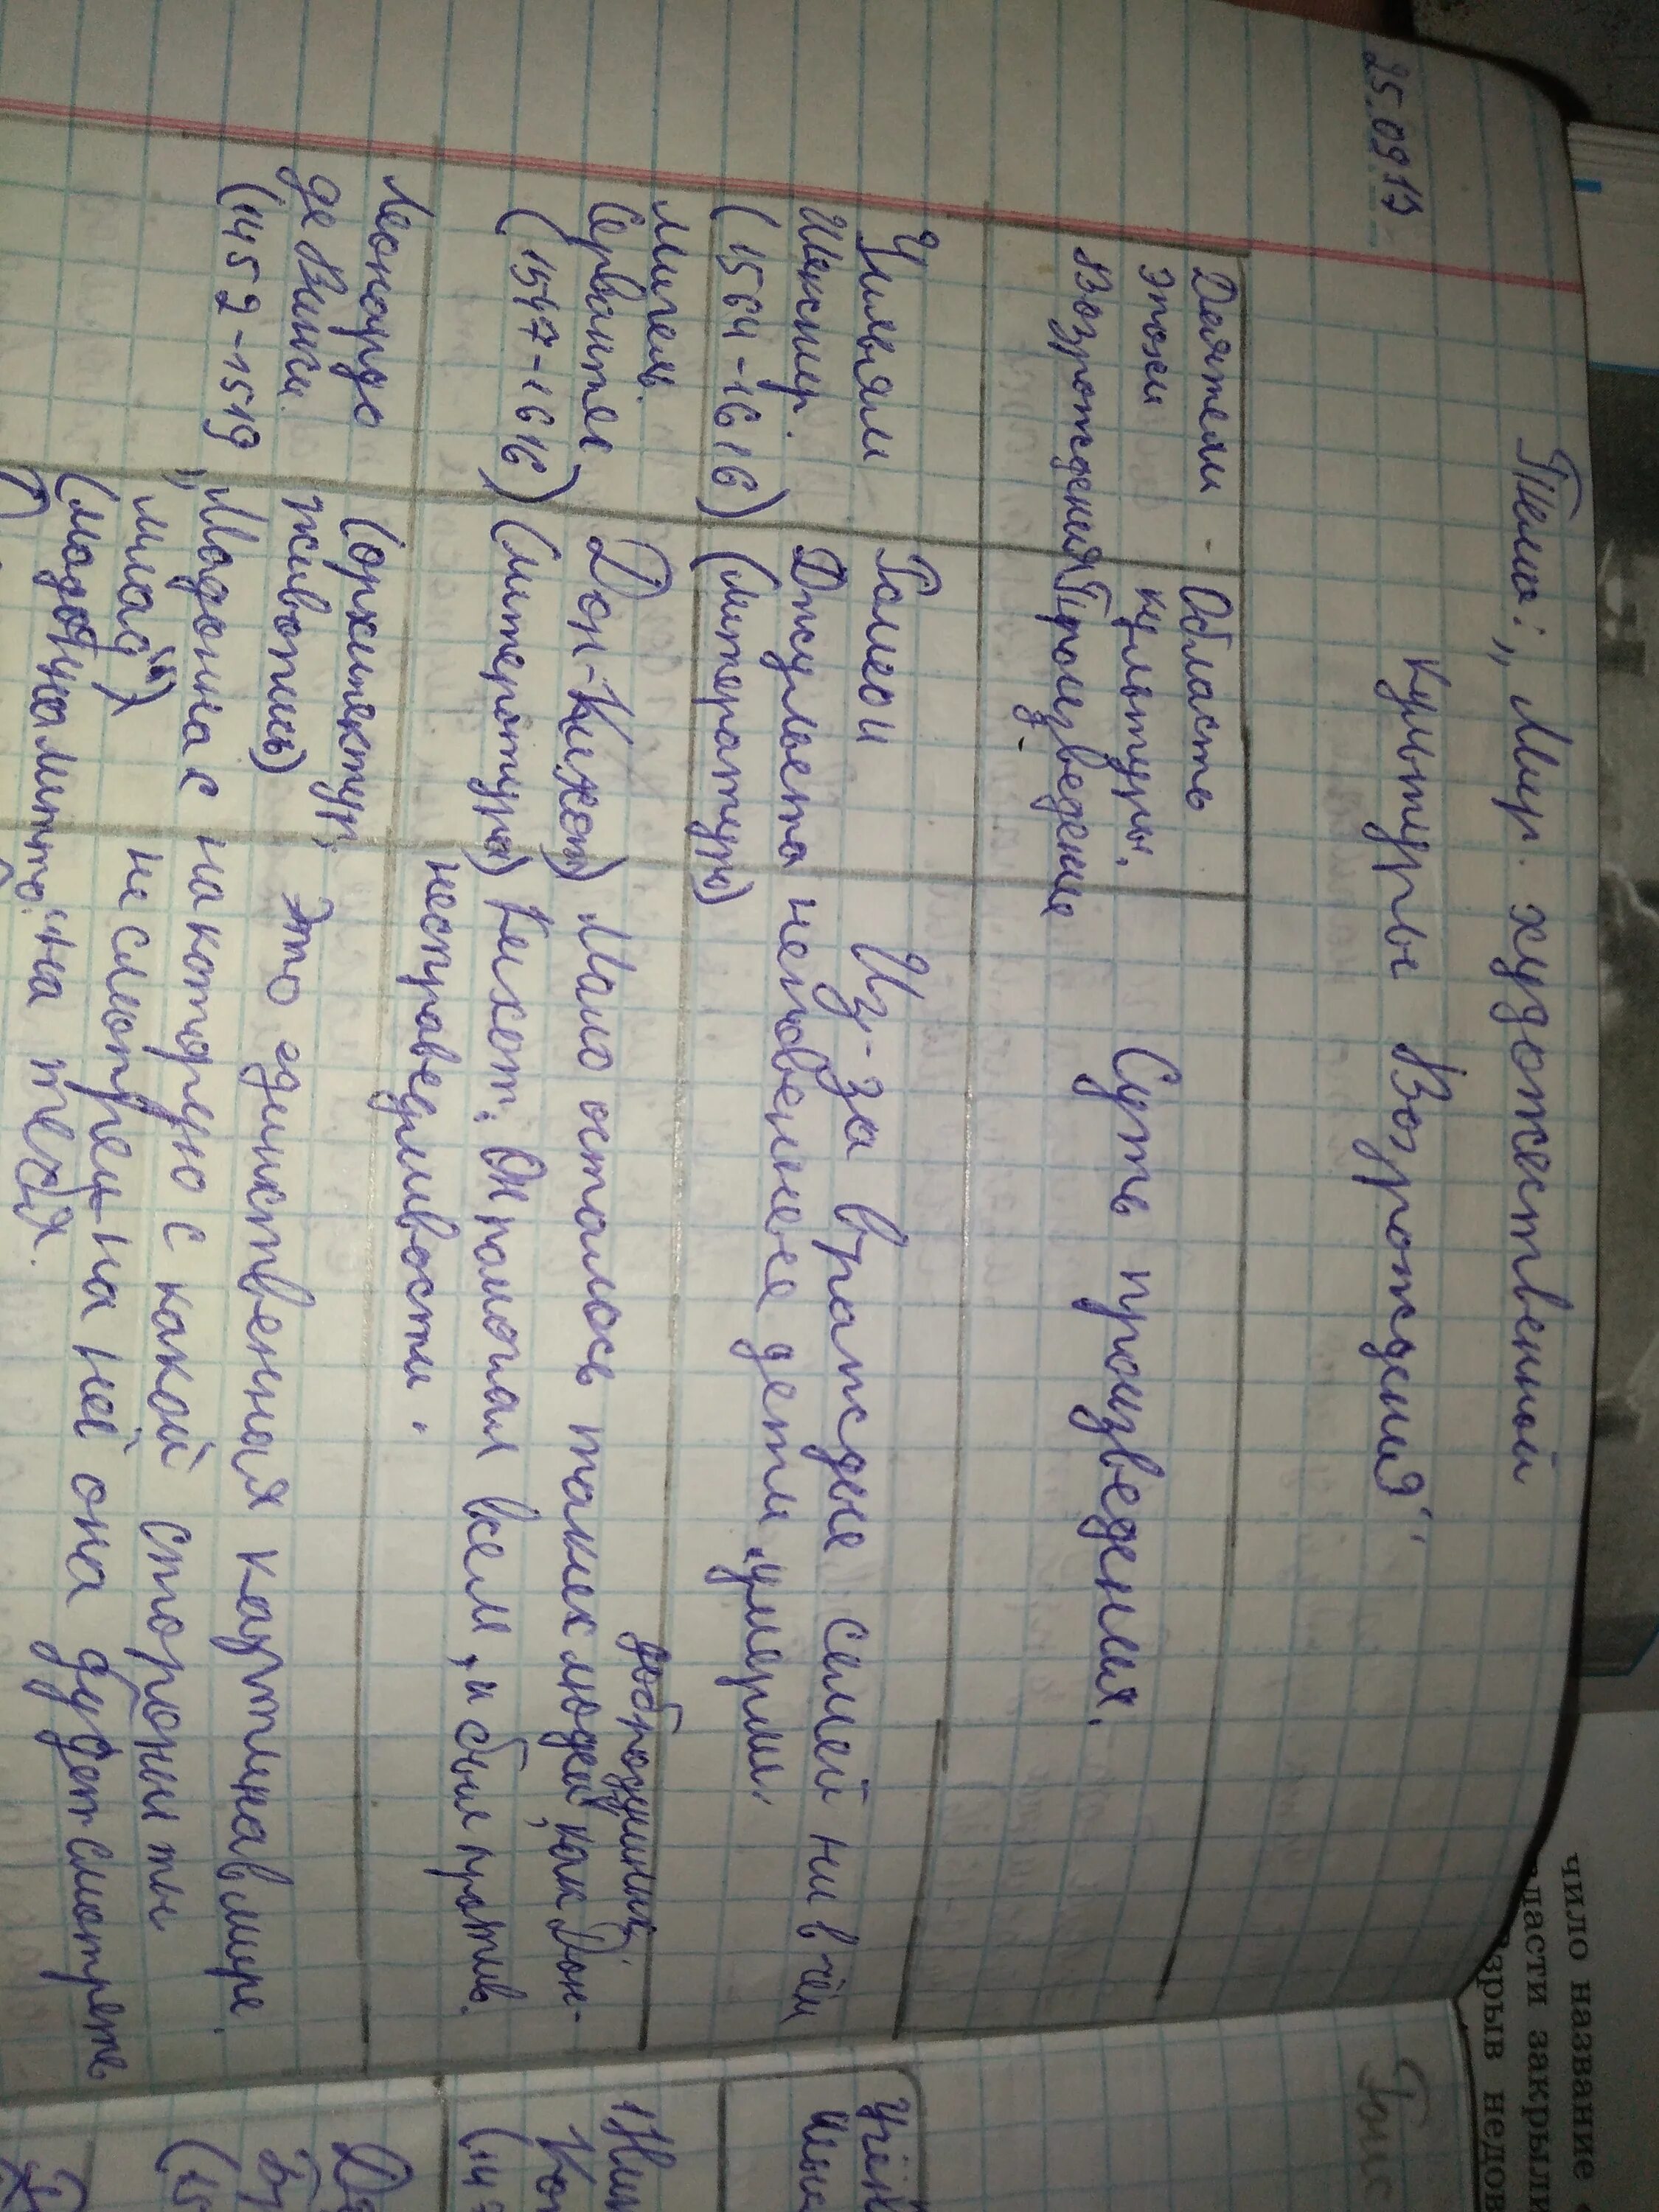 25.09.19
Тема: „Мир художественной
культуры Возрождения"
Деятели
эпохи
Возрождения
- Область
культуры.
Произведение
Суть произведения.
Уильям
Шекспир.
(1564-1616)
Ромео и
Джульета
(литература)
Из-за вражды семей ни в чём
неповенные дети „умерли"
Мигель
Сервантес
(1547-1616)
Дон-Кихот
(литература)
Мало осталось таких людей, как Дон-
добродушный
Кихот. Он помогал всем, и был против
несправедливости.
Леонардо
де Винчи.
(1452-1519
(архитектур,
живопись)
„Мадонна с
млад")
(мадонна литта"
Это единственная картина в мире.
на которую с какой стороны ты
не смотрел на неё она будет смотреть
на тебя.
чило название
ласти закрыли
зрыв недо